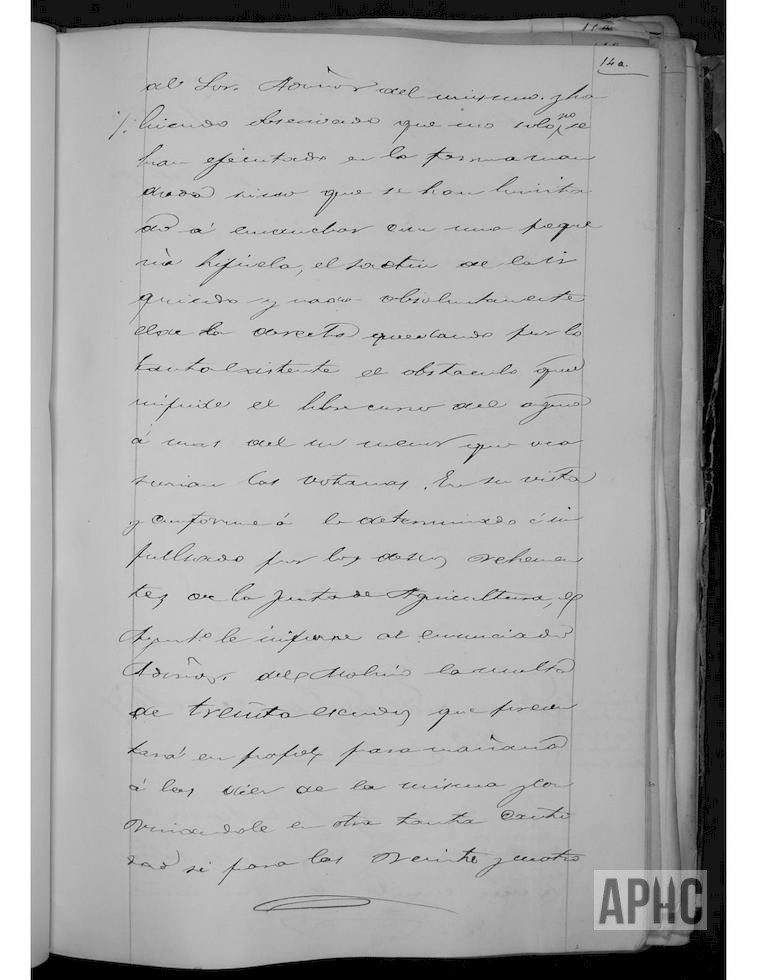 14a.
al Sor. Admor. del mismo. y ha
biendo observado que no solo no se
han ejecutado en la forma man
dada sino que se han limita
do á enanchar con una peque
ña hijuela, el de la iz
quierda y nada absolutamente
de la derecha quedando por lo
tanto existente el obstaculo que
impide el libre curso del agua
á mas del que oca
sionan las. En su vista
y conforme á lo determinado é im
pulsado por los deseos vehemen
tes de la Junta de Agricultura, el
Ayunto. le impone al enunciado
Admor. del Molino la multa
de treinta escudos que presen
tará en papel para mañana
á las diez de la misma y con
minandole en otra tanta canti
dad si para las veinte y cuatro
APHC